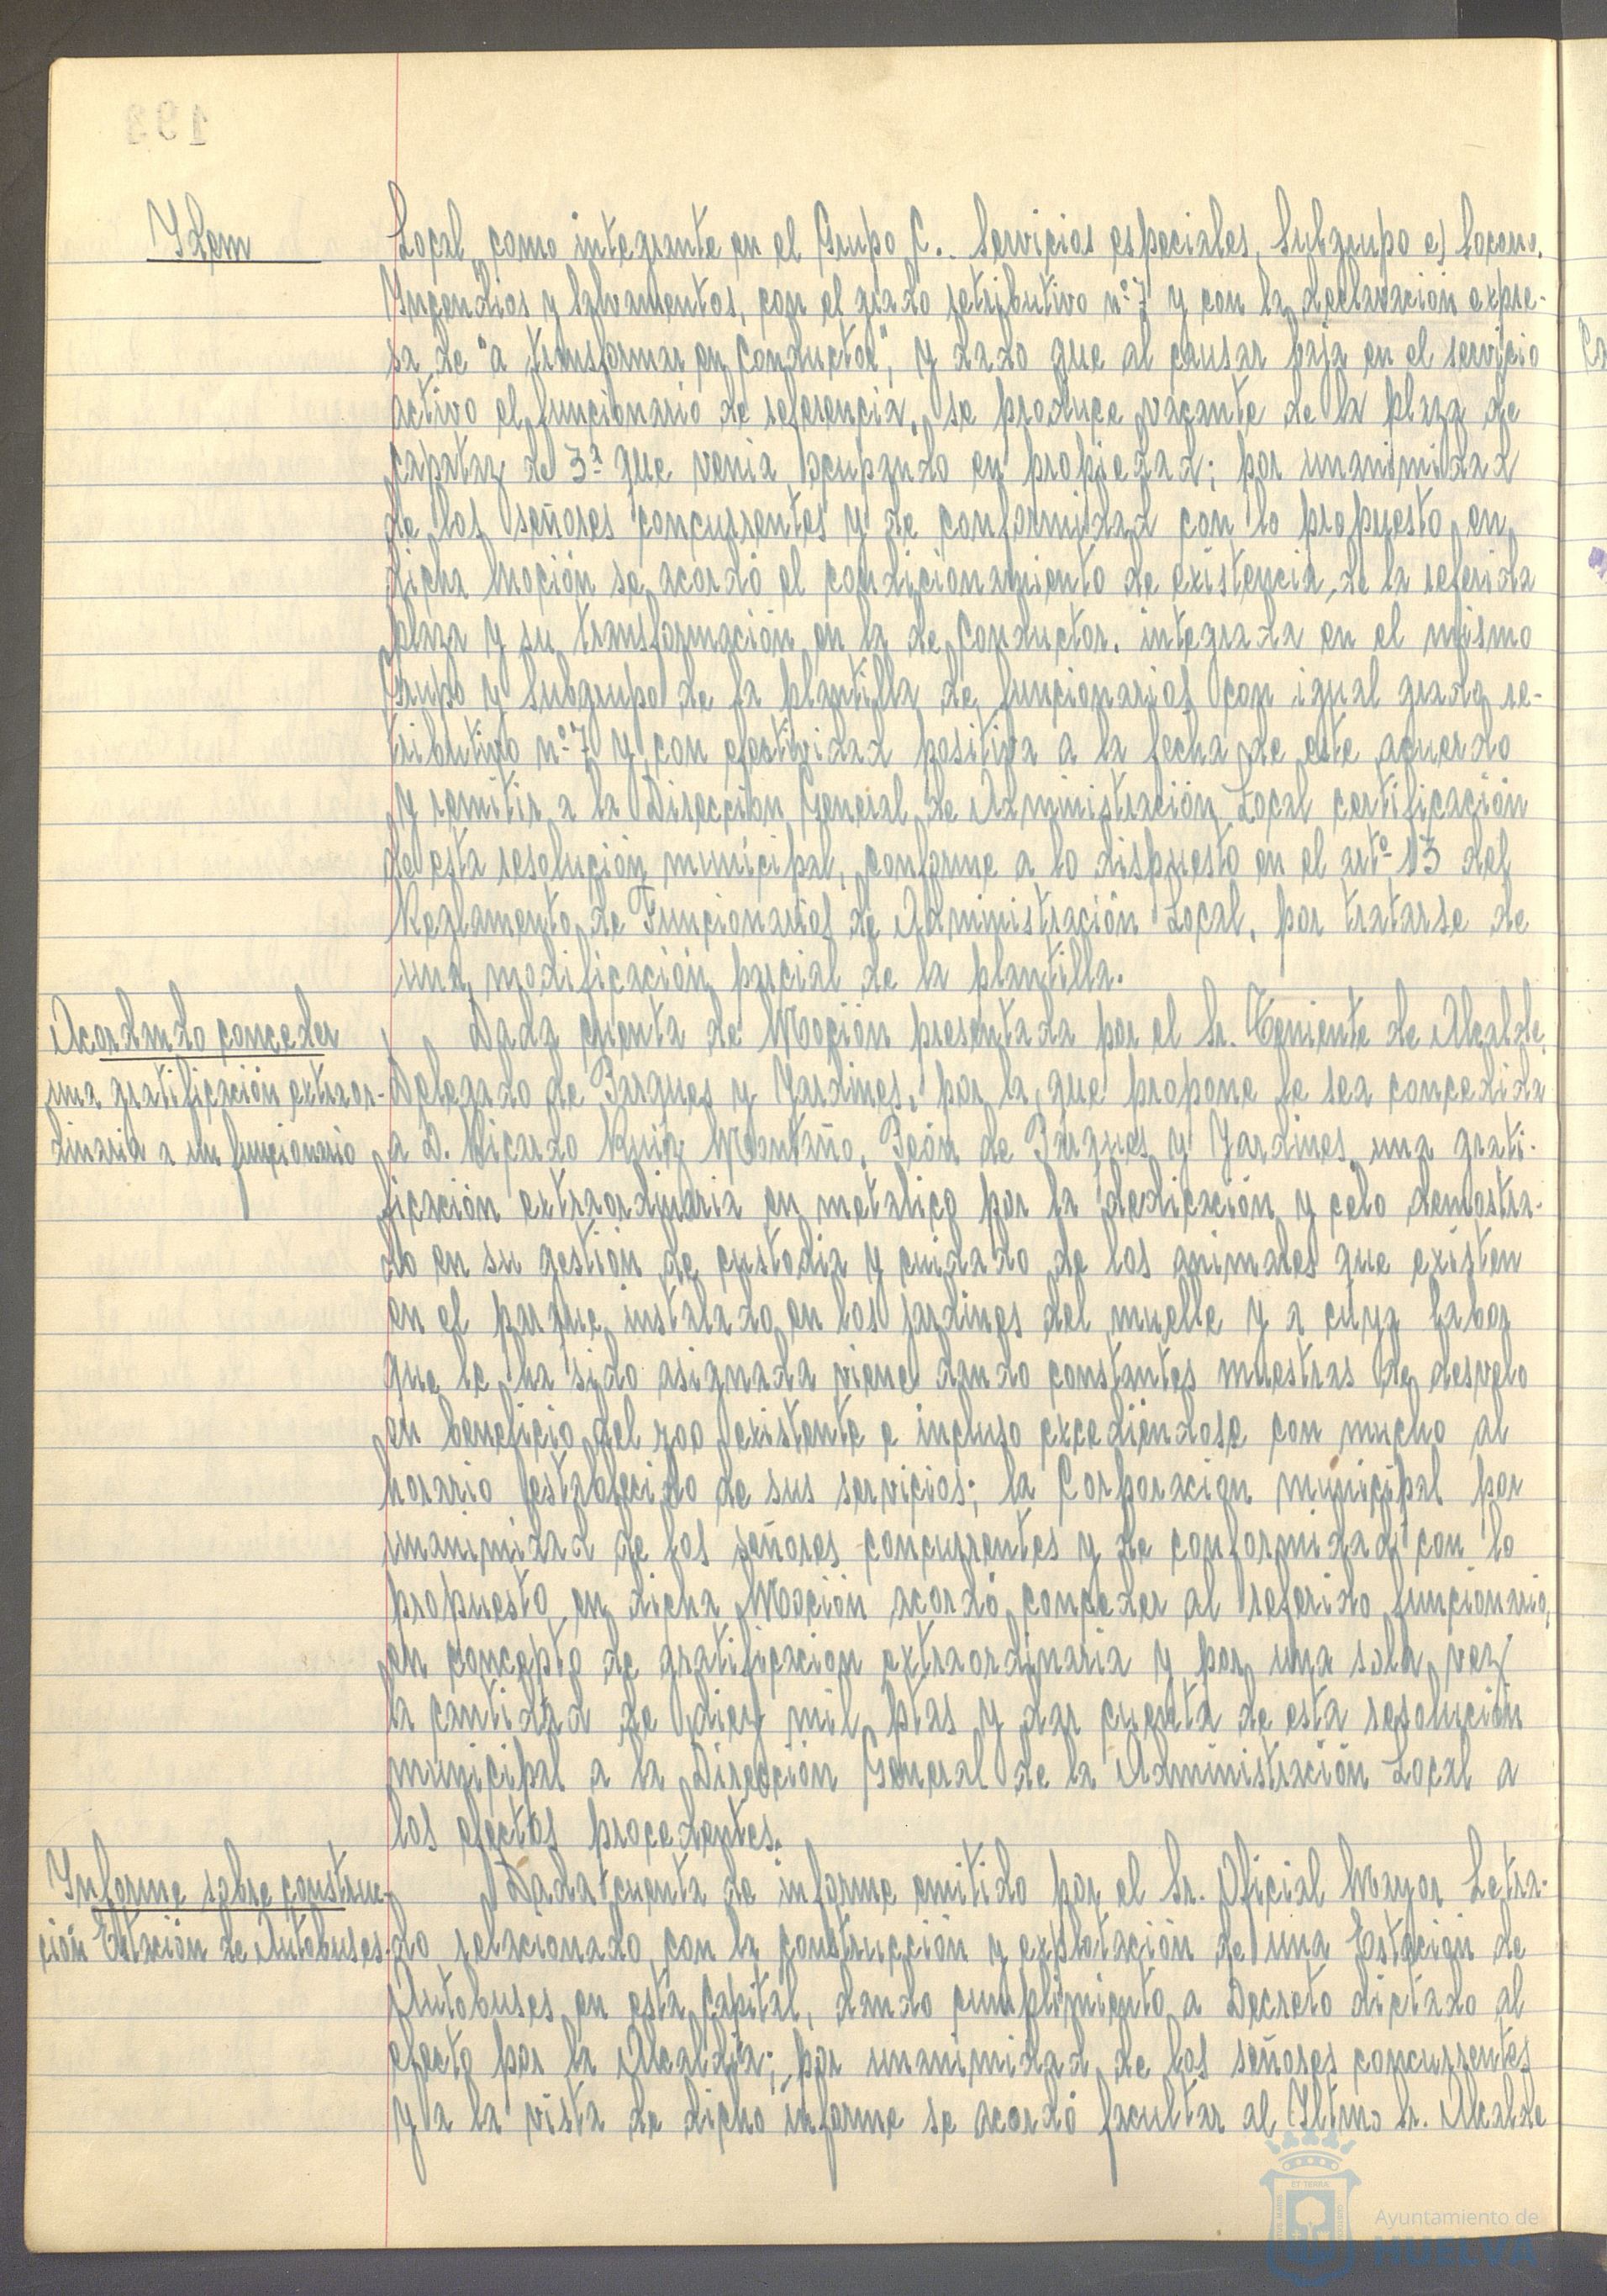 193
Idem
Local, como integrante en el Grupo C.. Servicios especiales, Subgrupo e)
Incendios y Salvamentos, con el grado retributivo nº 7 y con la declaración expre-
sa de "a transformar en Conductor", y dado que al causar baja en el servicio
activo el funcionario de referencia, se produce vacante de la plaza de
Capataz de 3ª que venia ocupando en propiedad; por unanimidad
de los señores concurrentes y de conformidad con lo propuesto en
dicha Moción se acordó el condicionamiento de existencia, de la referida
plaza y su transformación en la de Conductor, integrada en el mismo
Grupo y Subgrupo de la plantilla de funcionarios con igual grado re-
tributivo nº 7 y con efectividad positiva a la fecha de este acuerdo
y remitir a la Dirección General de Administración Local certificación
de esta resolución municipal, conforme a lo dispuesto en el artº 13 del
Reglamento de Funcionarios de Administración Local, por tratarse de
una modificación parcial de la plantilla.
Acordando conceder
una gratificación extraor-
dinaria a un funcionario
Dada cuenta de Moción presentada por el Sr. Teniente de Alcalde
Delegado de Parques y Jardines, por la que propone le sea concedida
a D. Ricardo Ruiz Montaño, Peón de Parques y Jardines una grati-
ficación extraordinaria en metalico por la dedicación y celo demostra-
do en su gestión de custodia y cuidado de los animales que existen
en el parque instalado en los jardines del muelle y a cuya labor
que le ha sido asignada viene dando constantes muestras de desvelo
en beneficio del zoo existente e incluso excediéndose con mucho al
horario establecido de sus servicios; la Corporación municipal por
unanimidad de los señores concurrentes y de conformidad con lo
propuesto en dicha Moción acordó conceder al referido funcionario,
en concepto de gratificacion extraordinaria y por una sola vez
la cantidad de diez mil ptas y dar cuenta de esta resolución
municipal a la Dirección General de la Administración Local a
los efectos procedentes.
Informe sobre construc-
ción Estación de Autobuses.
Dada cuenta de informe emitido por el Sr. Oficial Mayor Letra-
do relacionado con la construcción y explotación de una Estación de
Autobuses en esta Capital, dando cumplimiento a Decreto dictado al
efecto por la Alcaldía; por unanimidad de los señores concurrentes
y a la vista de dicho informe se acordó facultar al Iltmo Sr. Alcalde
Ayuntamiento de
HUELVA